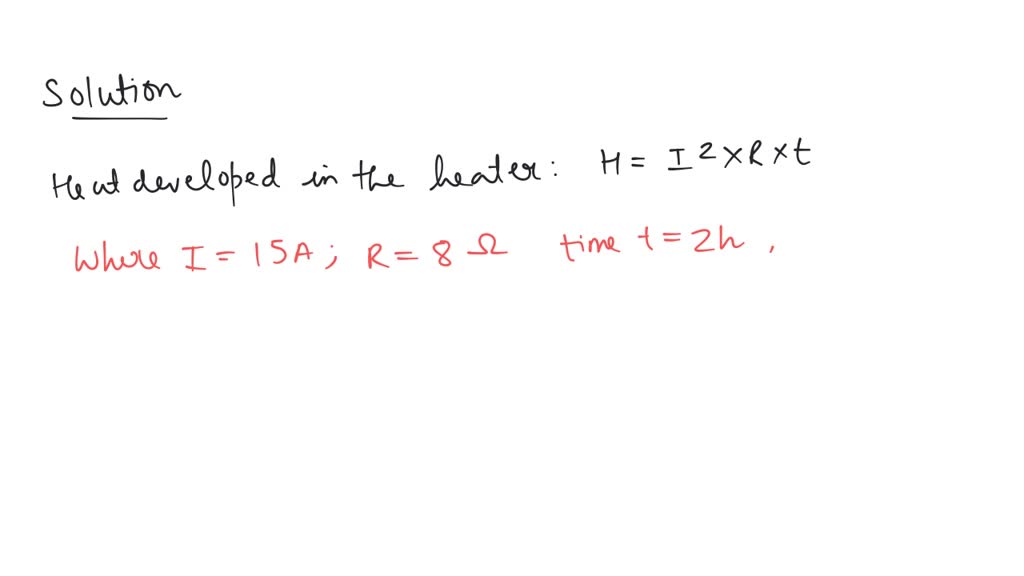 Solution
Heat developed in the heater: H = I 2 x R x t
Where I = 15A; R = 8 Ω time t = 2h ,